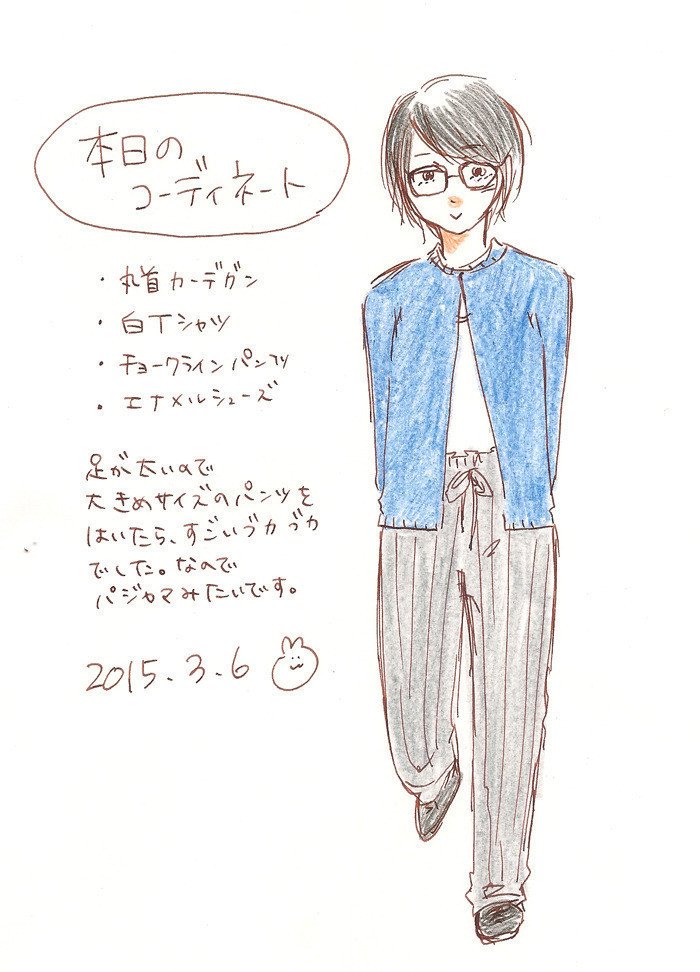 本日の
コーディネート
・丸首カーデガン
・白Tシャツ
・チョークラインパンツ
・エナメルシューズ
足が太いので
大きめサイズのパンツを
はいたら、すごいブカブカ
でした。なので
パジャマみたいです。
2015.3.6